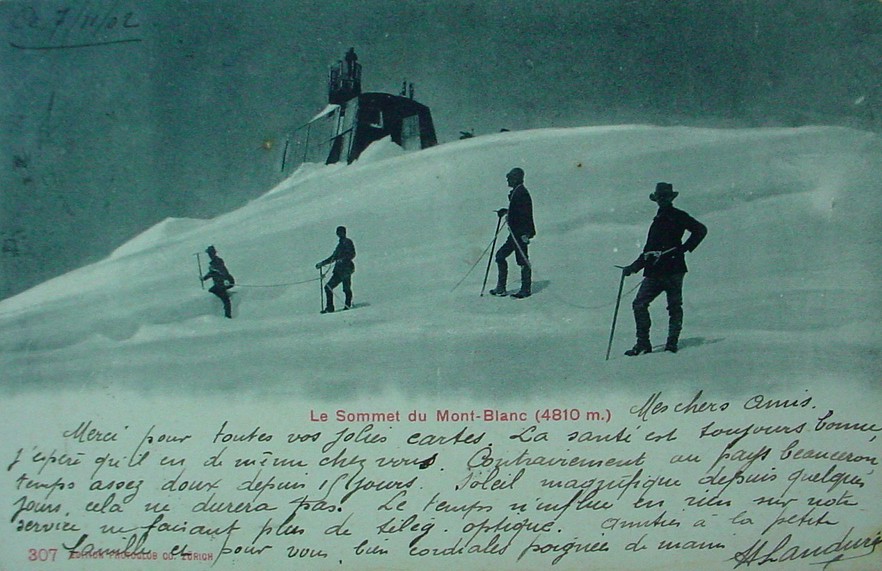 Ce 7/11/02
Le Sommet du Mont-Blanc (4810 m.)
Mes chers amis.
Merci pour toutes vos jolies cartes. La santé est toujours bonne,
j'épère qu'il en de même chez vous. Contrairement au pays beauceron
temps assez doux depuis 15 jours. Soleil magnifique depuis quelques
jours, cela ne durera pas. Le temps n'influe en rien sur notre
service ne faisant plus de télég. optique. Amitiés à la petite
famille et pour vous bien cordiales poignées de main
307 EDITION PHOTOGLOB CO. ZÜRICH